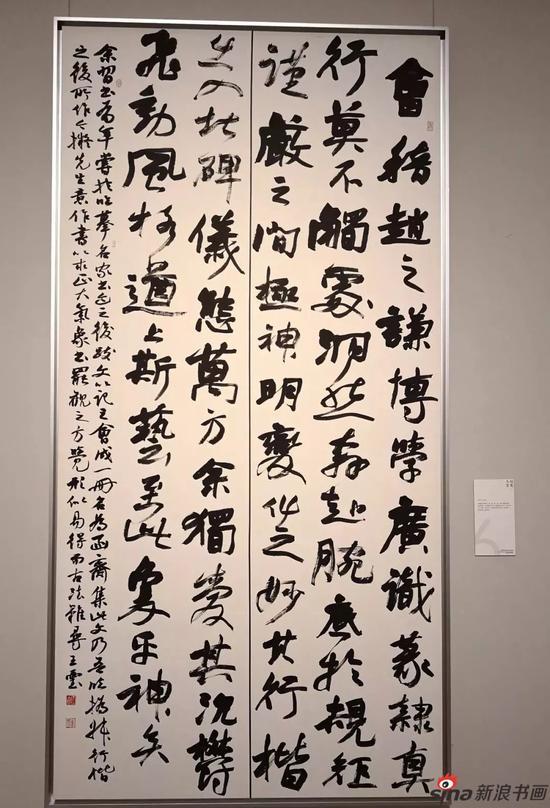 會稽趙之謙博學廣識篆隸真
行莫不觸處洞然奔赴腕底於規矩
謹嚴之間極神明變化之妙其行楷
出入北碑儀態萬方余獨愛其沉鬱
飛動風格遒上斯藝至此乎神矣
余習書有年嘗於臨摹名家書迹之後跋文以記之會成一冊名為函齋集此文乃吾臨撝叔行楷
之後所作今擬先生意作書以求正大氣象書罷觀之方覺形似易得而古法難尋王雲
sina 新浪书画